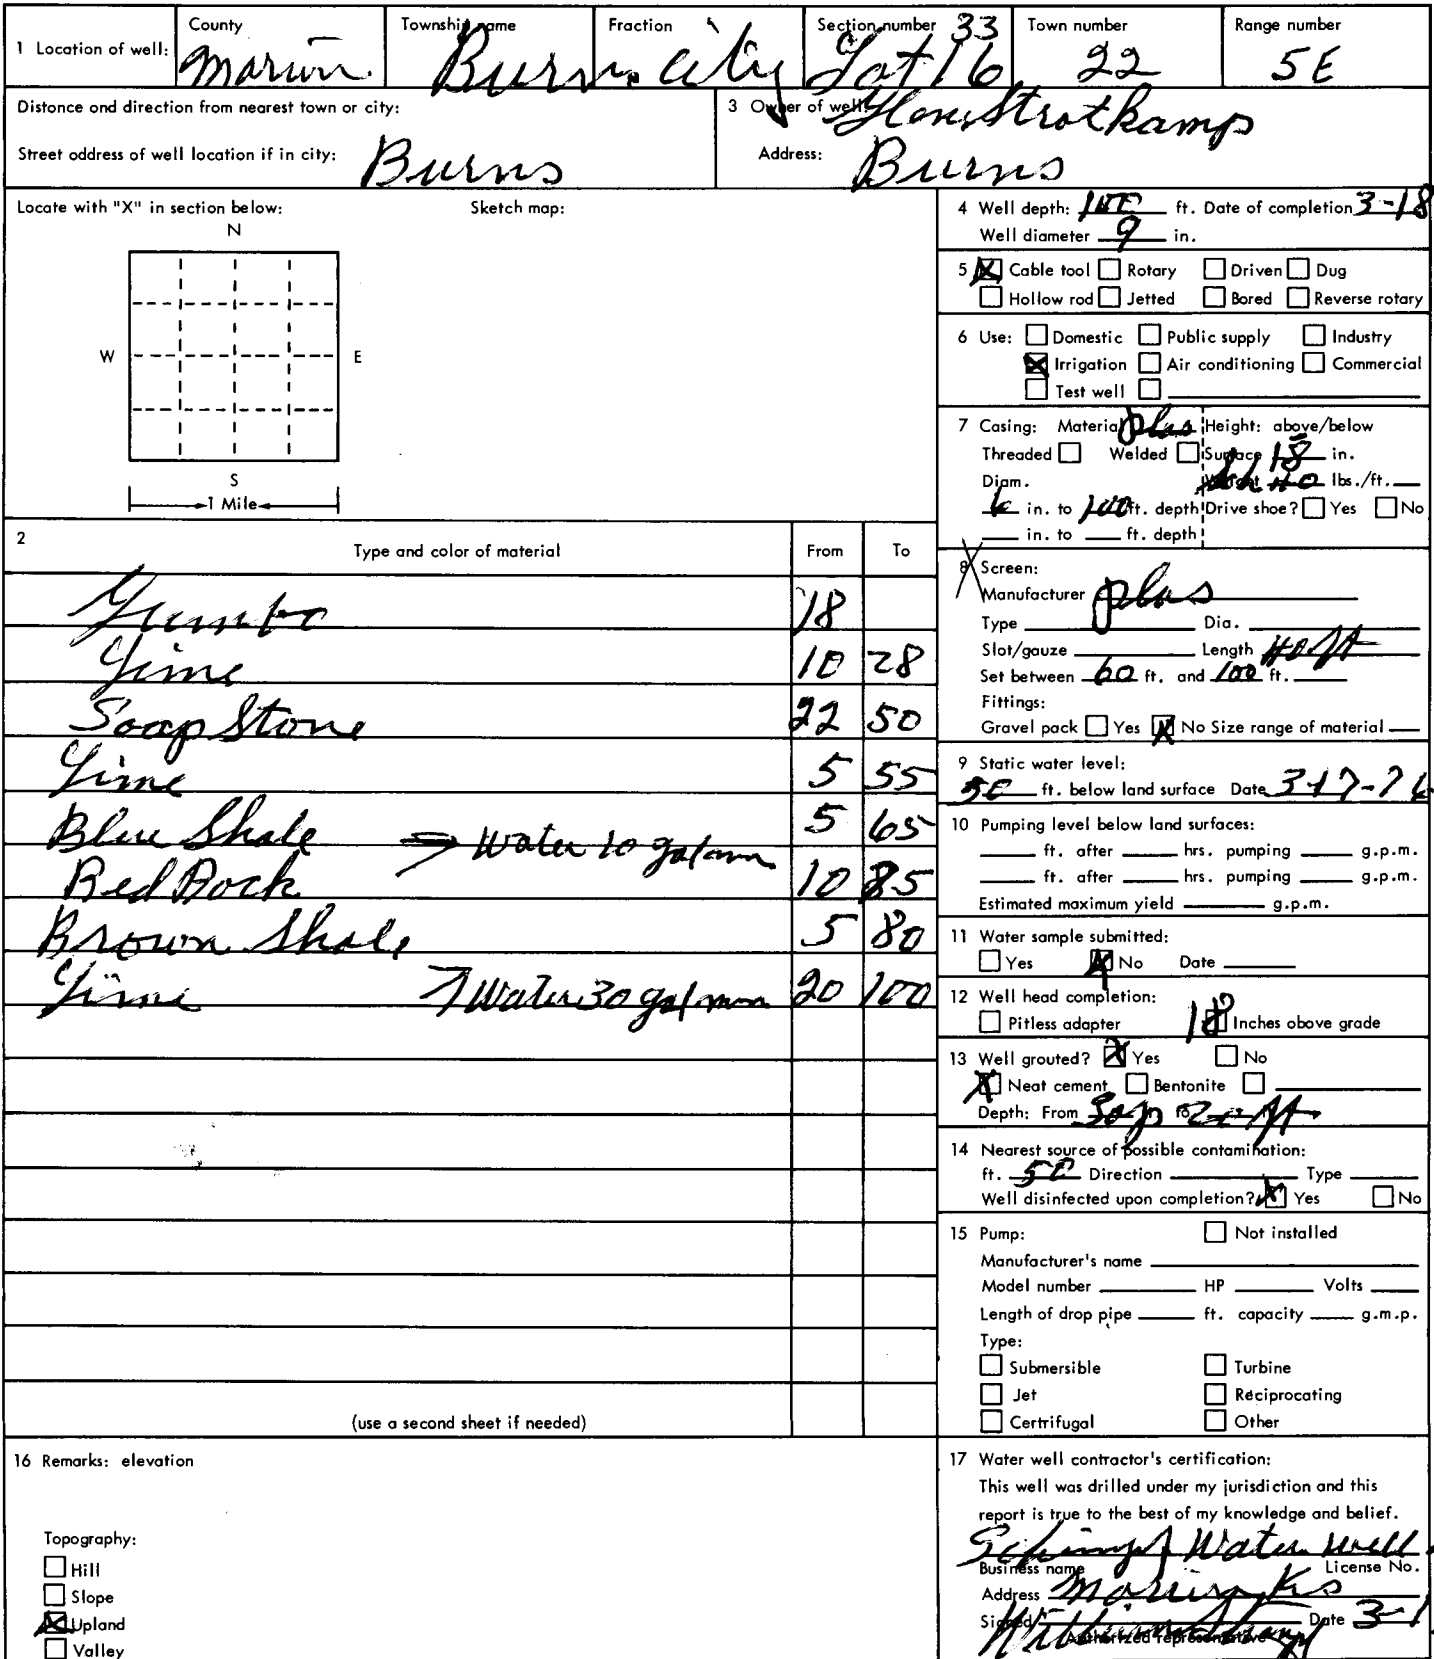 1 Location of well: County Marion Township name Burns Fraction city Section number 33 Lot 16 Town number 22 Range number 5E
Distance and direction from nearest town or city:
Street address of well location if in city: Burns
3 Owner of well: Strotkamp
Address: Burns
Locate with "X" in section below: Sketch map:
N
W E
S
1 Mile
2 Type and color of material From To
Gumbo 18
Lime 10 28
Soap Stone 22 50
Lime 5 55
Blue Shale 5 65
Water 10 gal/min
Red Rock 10 85
Brown Shale 5 80
Lime Water 30 gal/min 20 100
(use a second sheet if needed)
16 Remarks: elevation
Topography:
Hill
Slope
X Upland
Valley
4 Well depth: 100 ft. Date of completion 3-18
Well diameter 9 in.
5 X Cable tool Rotary Driven Dug
Hollow rod Jetted Bored Reverse rotary
6 Use: Domestic Public supply Industry
X Irrigation Air conditioning Commercial
Test well
7 Casing: Material plas Height: above/below
Threaded Welded Surface 18 in.
Diam. Weight Sh 40 lbs./ft.
6 in. to 100 ft. depth Drive shoe? Yes No
in. to ft. depth
8 Screen:
Manufacturer plas
Type Dia.
Slot/gauze Length 40 ft
Set between 60 ft. and 100 ft.
Fittings:
Gravel pack Yes X No Size range of material
9 Static water level:
50 ft. below land surface Date 3-17-76
10 Pumping level below land surfaces:
ft. after hrs. pumping g.p.m.
ft. after hrs. pumping g.p.m.
Estimated maximum yield g.p.m.
11 Water sample submitted:
Yes X No Date
12 Well head completion:
Pitless adapter 18 Inches above grade
13 Well grouted? X Yes No
X Neat cement Bentonite
Depth: From to 20 ft
14 Nearest source of possible contamination:
ft. 50 Direction Type
Well disinfected upon completion? X Yes No
15 Pump: Not installed
Manufacturer's name
Model number HP Volts
Length of drop pipe ft. capacity g.m.p.
Type:
Submersible Turbine
Jet Reciprocating
Certrifugal Other
17 Water well contractor's certification:
This well was drilled under my jurisdiction and this
report is true to the best of my knowledge and belief.
Schimpf Water Well
Business name License No.
Address Marion Ks
Signed William Date 3-1
Authorized representative